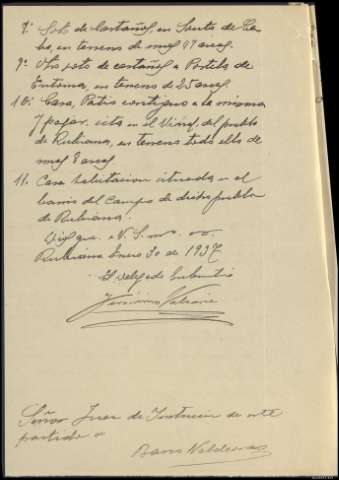 8ª Soto de Castaños, en Souto de Ca-
bo, en terreno de unas 49 areas.
9ª Otro soto de castaños a Portela de
Entoma, en terreno de 25 areas.
10: Casa, Patio contiguo a la misma
y pajar, sita en el Viñal del pueblo
de Rubiana, en terreno todo ello de
unas 8 areas
11. Casa habitacion situada en el
barrio del Campo de dicho pueblo
de Rubiana.
Rubiana Enero 30 de 1937
El Delegado
Señor Juez de Instruccion de este
partido de
Barco Valdeorras